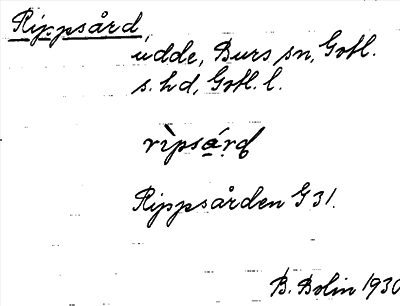 Rippsård,
udde, Burs sn, Gotl.
s. hd, Gotl. l.
rìpsá̱rd
Rippsården G 31.
B. Bolin 1930